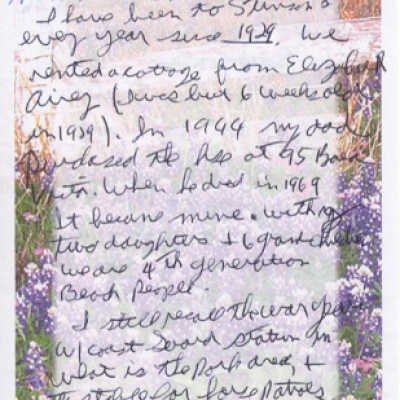 I have been to Stinson
every year since 1929. We
rented a cottage from Elizabeth
Airey (I was but 6 weeks old
in 1939). In 1944 my dad
purchased the hse at 95 Buena
Vista. When he died in 1969
It became mine. With my
two daughters + 6 grandchildren
we are 4th generation
Beach People.
I still recall the war years
w/ coast Guard station in
what is the Park area, +
the stable for horse Patrols